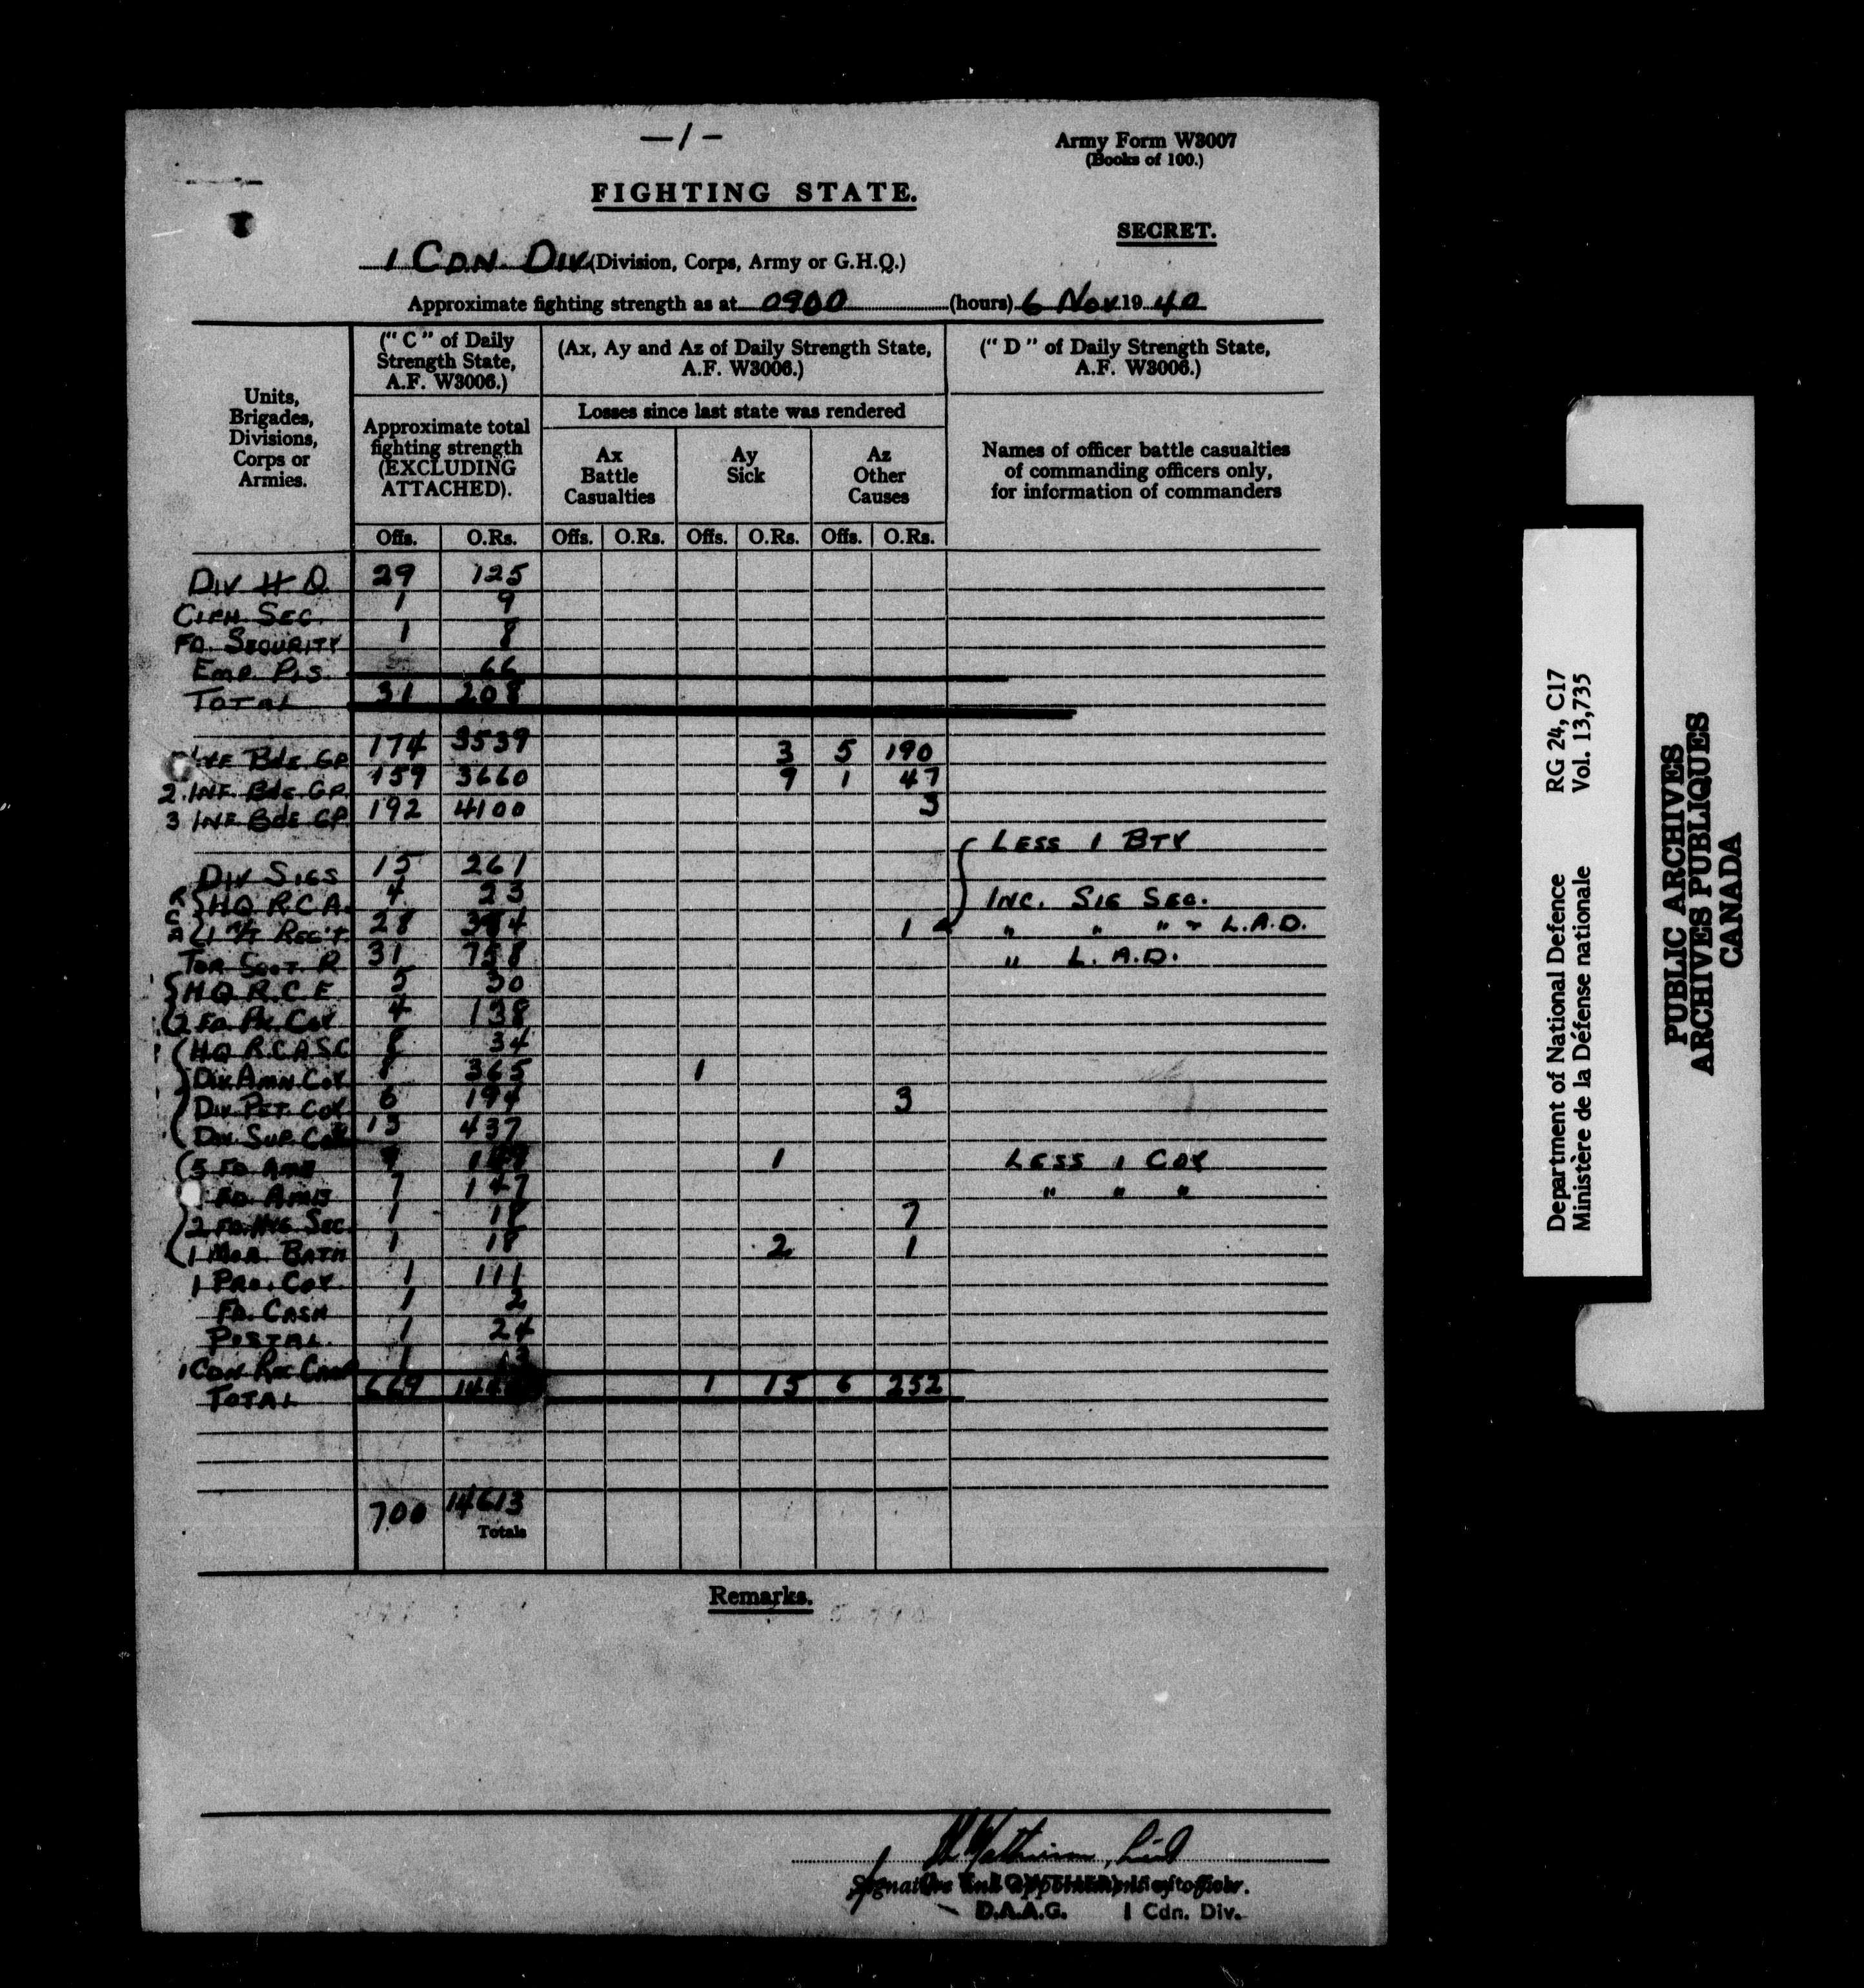 —1—
Army Form W3007
(Books of 100.)
FIGHTING STATE.
SECRET.
1 CDN. DIV. (Division, Corps, Army or G.H.Q.)
Approximate fighting strength as at 0900 (hours) 6 Nov 1940
Units, Brigades, Divisions, Corps or Armies.
("C" of Daily Strength State, A.F. W3006.)
(Ax, Ay and Az of Daily Strength State, A.F. W3006.)
("D" of Daily Strength State, A.F. W3006.)
Approximate total fighting strength (EXCLUDING ATTACHED).
Losses since last state was rendered
Ax Battle Casualties
Ay Sick
Az Other Causes
Names of officer battle casualties of commanding officers only, for information of commanders
Offs. O.Rs. Offs. O.Rs. Offs. O.Rs. Offs. O.Rs.
DIV H Q. 29 125
CIPH. SEC. 1 9
FD. SECURITY 1 8
EMP. PLS. 66
TOTAL 31 208
INF BDE. GP 174 3539 3 5 190
2. INF. BDE. GP. 159 3660 9 1 47
3 INF. BDE GP. 192 4100 3
LESS 1 BTY
DIV SIGS 15 261
HQ R.C.A. 4 23 INC. SIG SEC.
1 A/T REG'T. 28 1 " " " + L.A.D.
TOR SCOT. R 31 758 " L.A.D.
HQ R.C.E. 5 30
2 FD. PK. COY 4 138
HQ R.C.A.S.C 8 34
DIV. AMN COY 8 365 1
DIV PET. COY 6 194 3
DIV. SUP COL 13 437
5 FD AMB 9 1 LESS 1 COY
FD. AMB 7 147 " " "
2 FD. HYG SEC. 1 18 7
1 MOB. BATH 1 18 2 1
1 PRO. COY 1 111
FD. CASH 1 2
POSTAL. 1 24
1 CDN REC CAMP 1 13
TOTAL 669 1 15 6 252
700 14613
Totals
Remarks.
Signature and appointment of officer.
D.A.A.G. 1 Cdn. Div.
Department of National Defence RG 24, C17
Ministère de la Défense nationale Vol. 13,735
PUBLIC ARCHIVES
ARCHIVES PUBLIQUES
CANADA